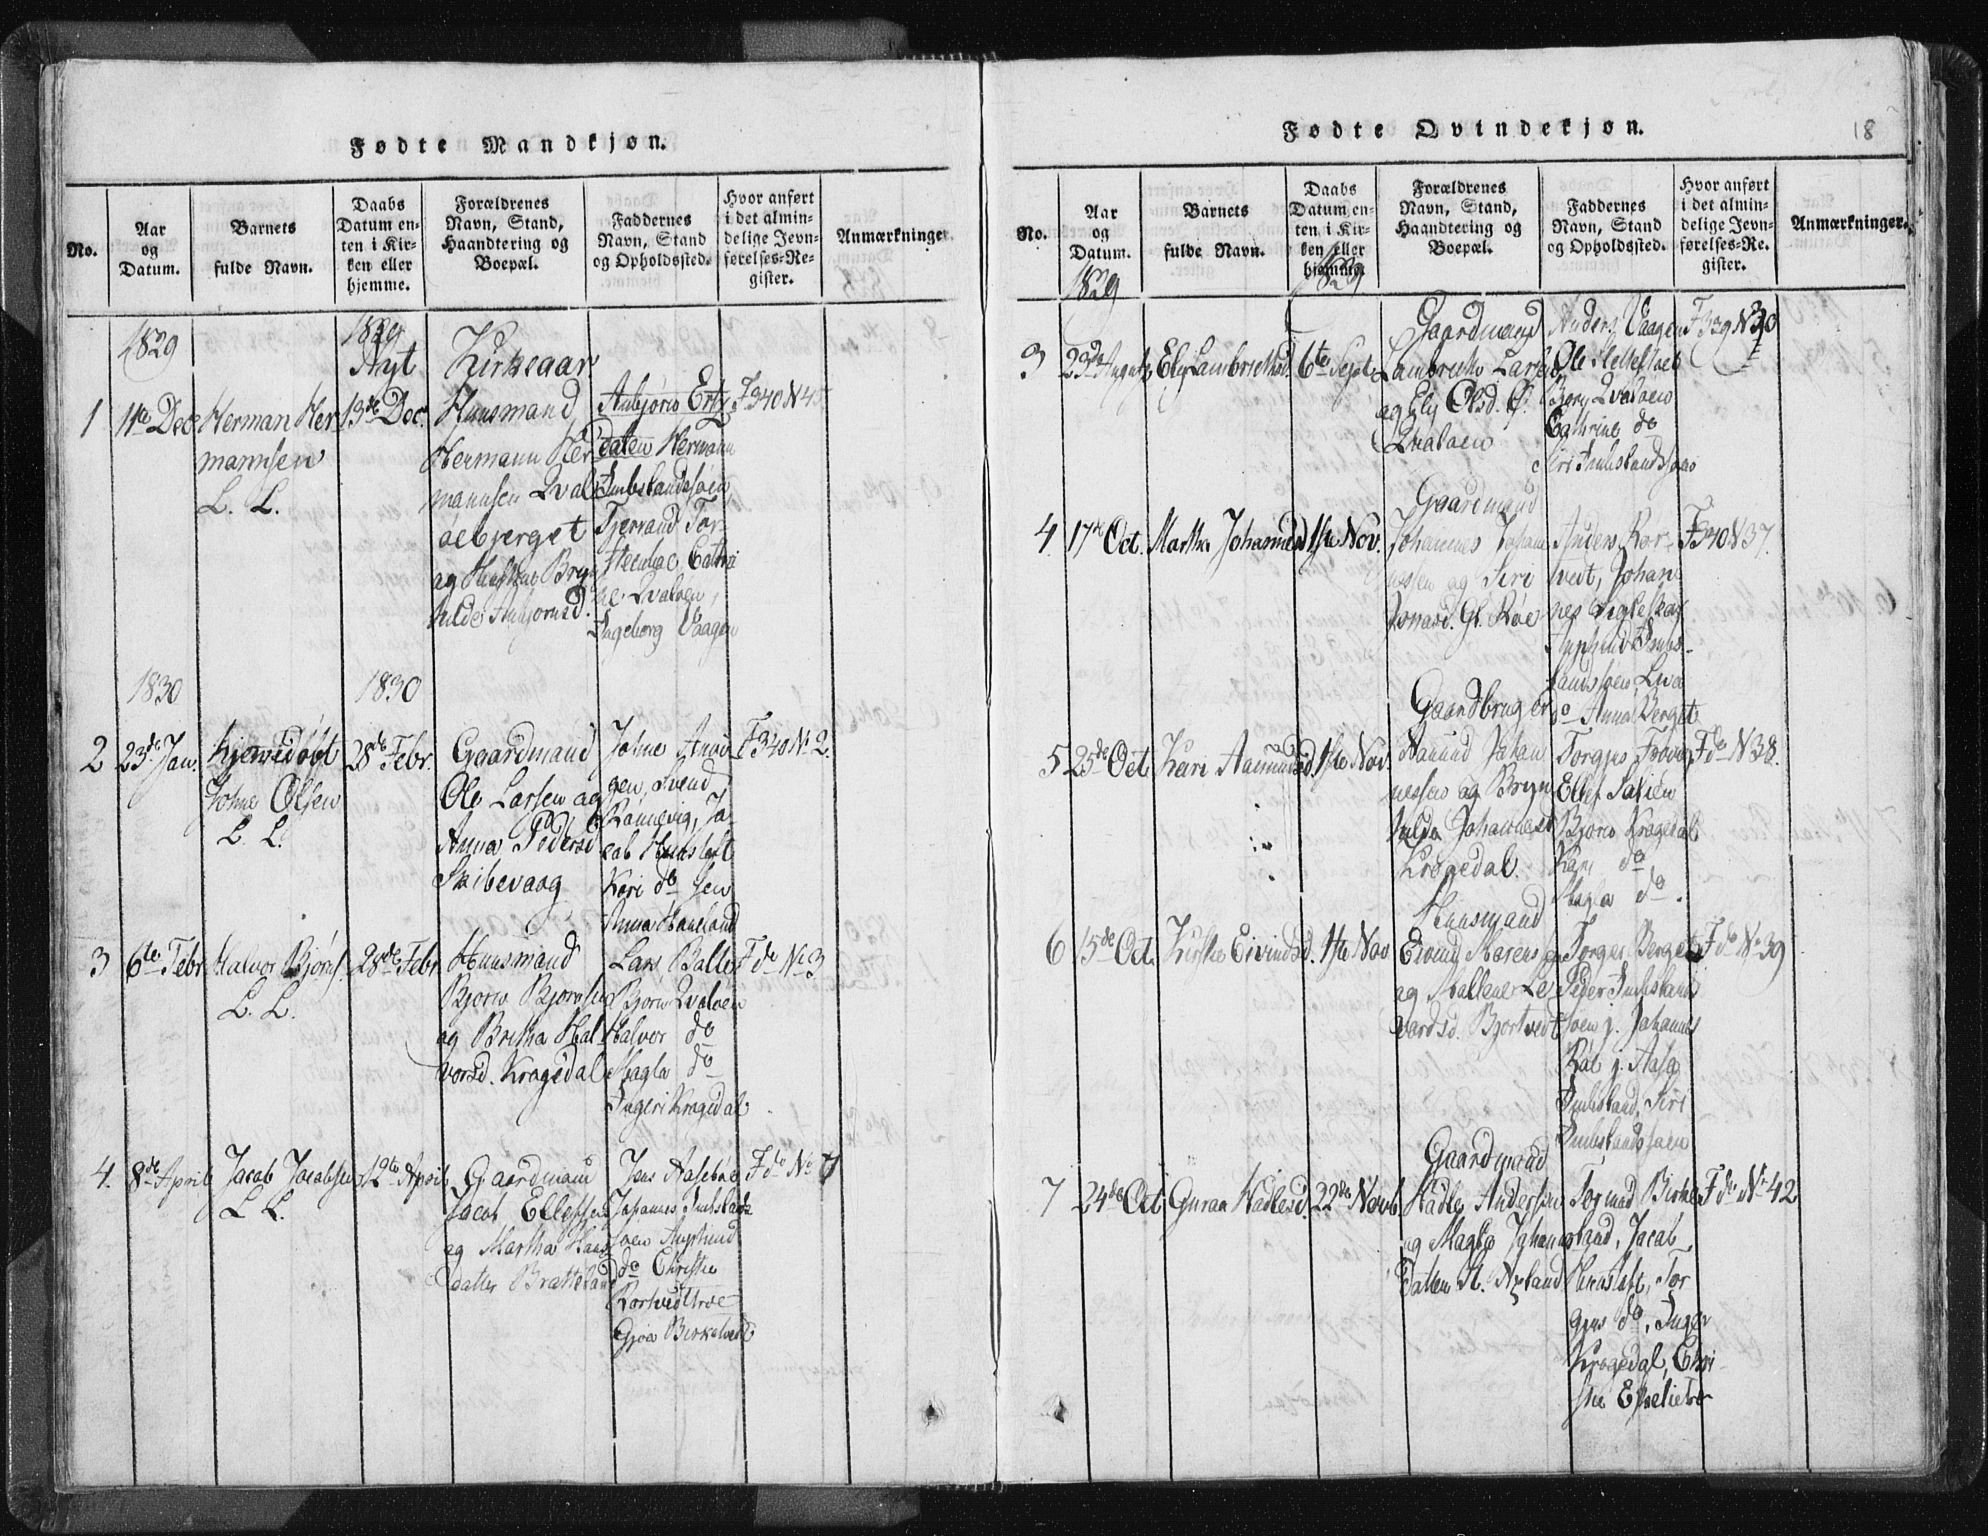 Fødte Mandkjøn.
No.
Aar
og
Datum.
Barnets
fulde Navn.
Daabs
Datum en-
ten i Kir-
ken eller
hjemme.
Forældrenes
Navn, Stand,
Haandtering og
Boepæl.
Faddernes
Navn, Stand
og Opholdssted.
Hvor anført
i det almin-
delige Jevn-
førelses-Re-
gister.
Anmærkninger.
1829
1829
Nyt Kirkeaar
1
11te Dec
Herman Her
mannsen
L. L.
13de Dec.
Huusmand
Hermann Her
mannsen Qval
öebjerget
ag Bryn
hilde Anbjörnsd.
Anbjörn Ertz
daten Hermann
Imbslandssöen
Tjerrand Tor
Cathri
ne Qvalöen,
Ingeborg Vaagen
F340 N45
1830
1830
2
23de Jan.
Johne Olsen
L. L.
28de Febr.
Gaardmand
Ole Larsen ag
Anna Pedersd
Skibevaag
Johne
gen, Svend
Rönnevig, Ja
cob
Kari do
Anna Haueland
F340 No 2.
3
6te Febr
Halvor Björns.
L. L.
28de Febr.
Huusmand
Bjorn Bjornsen
ag Britha Hal
vorsd. Kragedal
Lars Balle
Bjorn Qvaløen
Halvor do
Magla do
Ingeri Kragedal
F do No 3
4.
8de April
Jacob Jacobsen
L L.
12te April
Gaardmand
Jacob Ellefsen
ag Martha Hans
datter Bratteland
Jens Aasebøe
Johannes Imbsland
söen
do Christie
Gjøa Birkelvedt
F do No 7
Fødte Qvindekjøn.
18
No.
Aar
og
Datum.
Barnets
fulde Navn.
Daabs
Datum en-
ten i Kir-
ken eller
hjemme.
Forældrenes
Navn, Stand,
Haandtering og
Boepæl.
Faddernes
Navn, Stand
og Opholdssted.
Hvor anført
i det almin-
delige Jevn-
førelses-Re-
gister.
Anmærkninger.
1829
1829
3
23de Augusti
Ely Lambrethsd.
6te Septe
Gaardmand
Lambrecht Larsen
ag Ely Olsd. Ö.
Qvaløen
Anders Vaagen
Ole
Berg Qvaløen
Cathrine do
Siri Imbslandssøen
F339 N30
4
17de Oct.
Martha Johannesd
1ste Nov.
Gaardmand
Johannes Johan
nessen ag Siri
Jonasd. Gl. Röe
Anders Ror-
vedt, Johan
nes Digleskar
Imbs-
landssöen, Liva
do Anna Berget
F340 N37.
5
25de Oct
Kari Aamundsd.
1ste Nov
Gaardbruger
Aamund Johan
nessen ag Bryn
hilde Johannesd
Krogedal.
Torgjus
Ellef
Bjorn Kragedal
Kari do
Magla do.
F do N38.
6
15de Oct.
Kirstie Eivindsd.
1ste Nov
Huusmand
Eivind
ag Mallene Le
vardsd. Bjortvedt
Torges Berget
Peder Imbsland
söen j. Johannes
j. Aasg
Imbsland, Siri
Imbslandssøen
F do No 39
7
24de Oct
Guraa Hadlesd.
22de Novb
Gaardmand
Hadle Andersen
ag Magla Johannes
datter N. Axland
Tormod Birke
land, Jacob
Tor
gjus do, Inger
Krogedal, Chri
stie
F do No 42